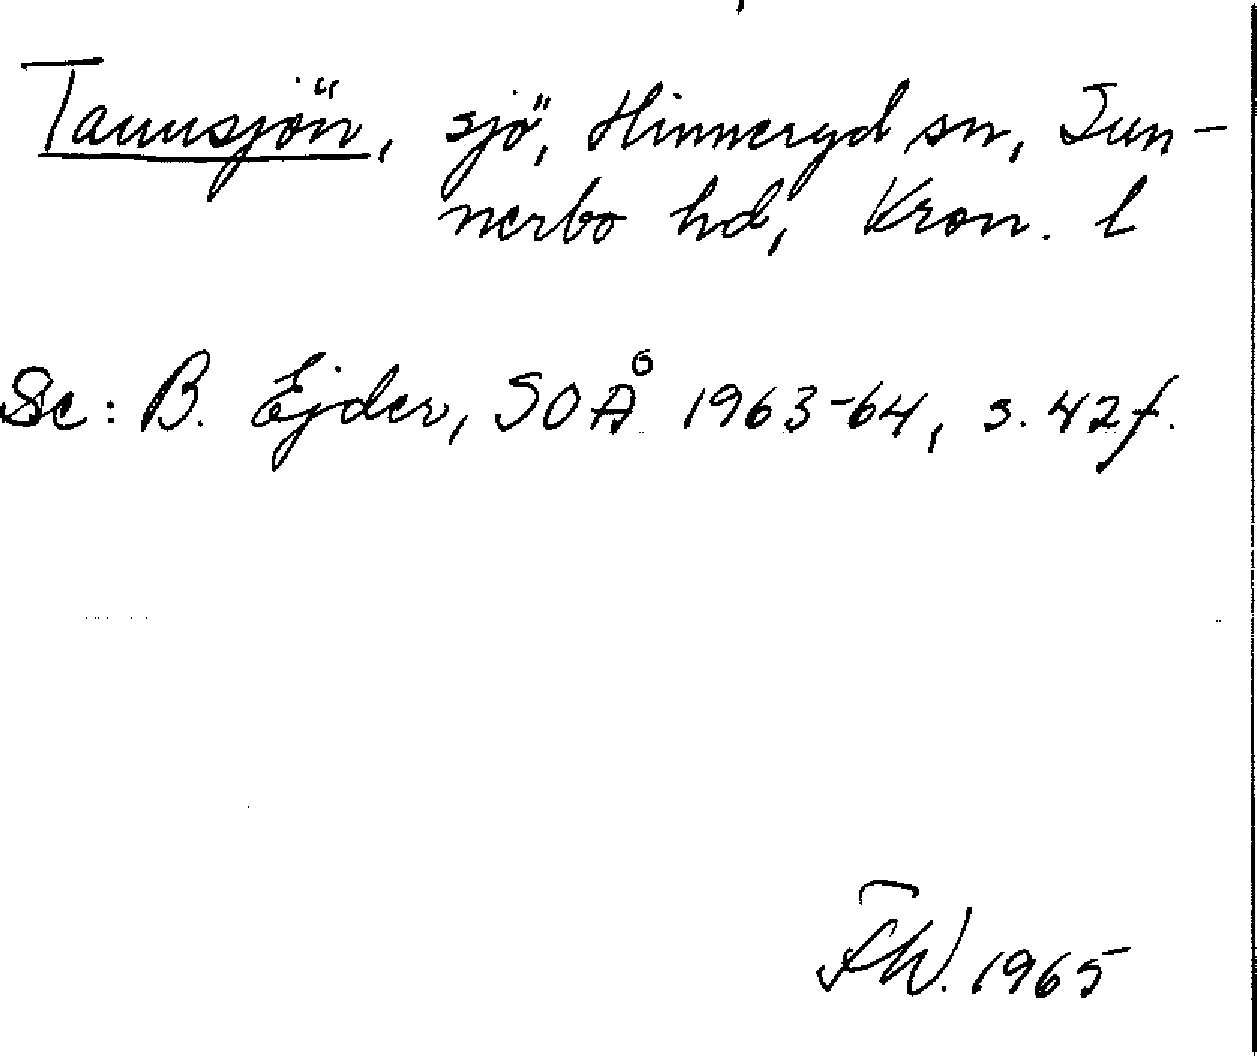 Tannsjön, sjö, Hinneryd sn, Sun-
nerbo hd, Kron. l
Se: B. Ejder, SOÅ 1963-64, s. 42 f.
F.W. 1965